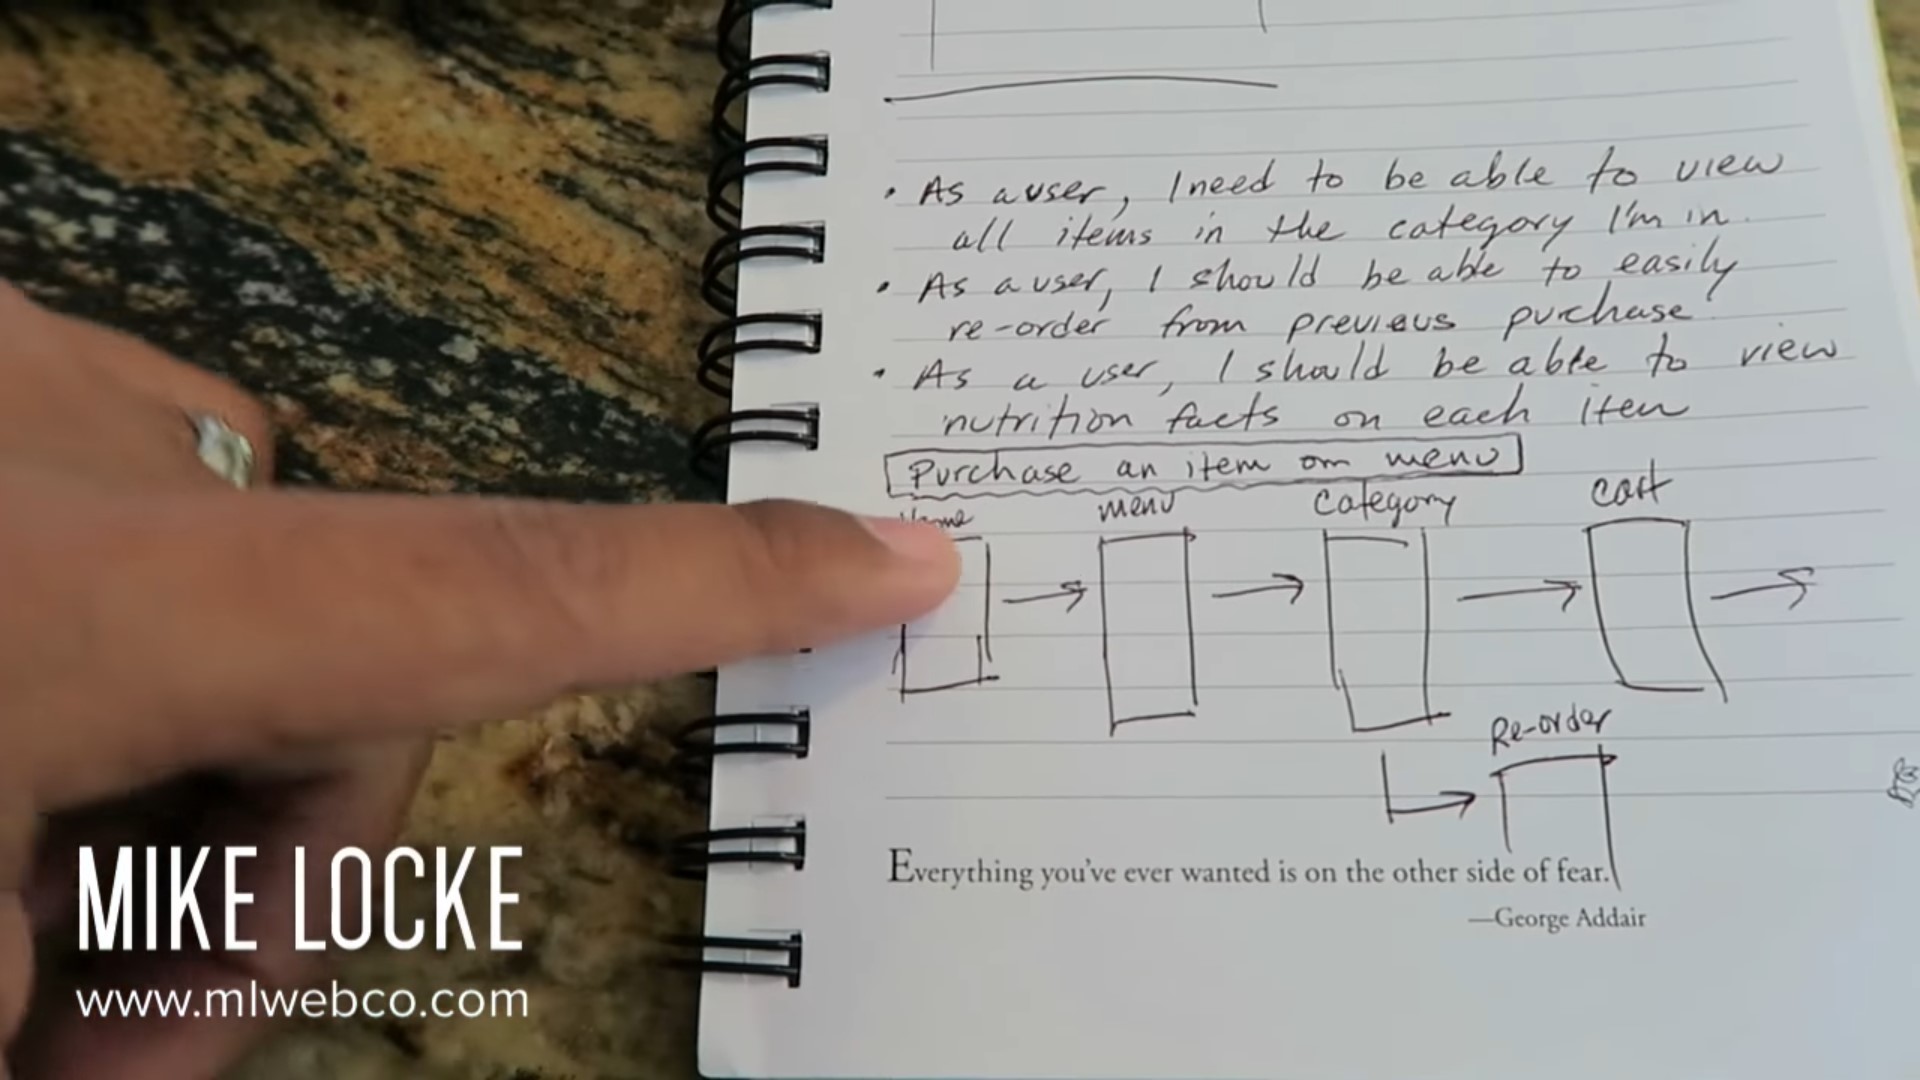 • As a user, I need to be able to view
all items in the category I'm in.
• As a user, I should be able to easily
re-order from previous purchase.
• As a user, I should be able to view
nutrition facts on each item
Purchase an item om menu
Home menu Category cart
Re-order
Everything you've ever wanted is on the other side of fear.
—George Addair
MIKE LOCKE
www.mlwebco.com